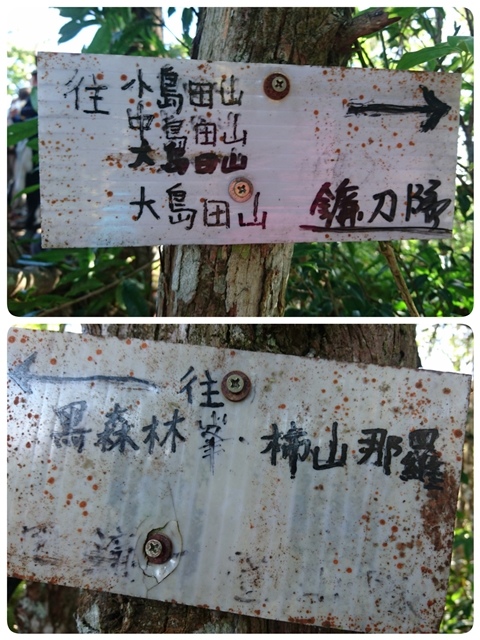 往 小島田山
中島田山
大島田山
大島田山 鐮刀
往
黑森林峯·柿山那羅